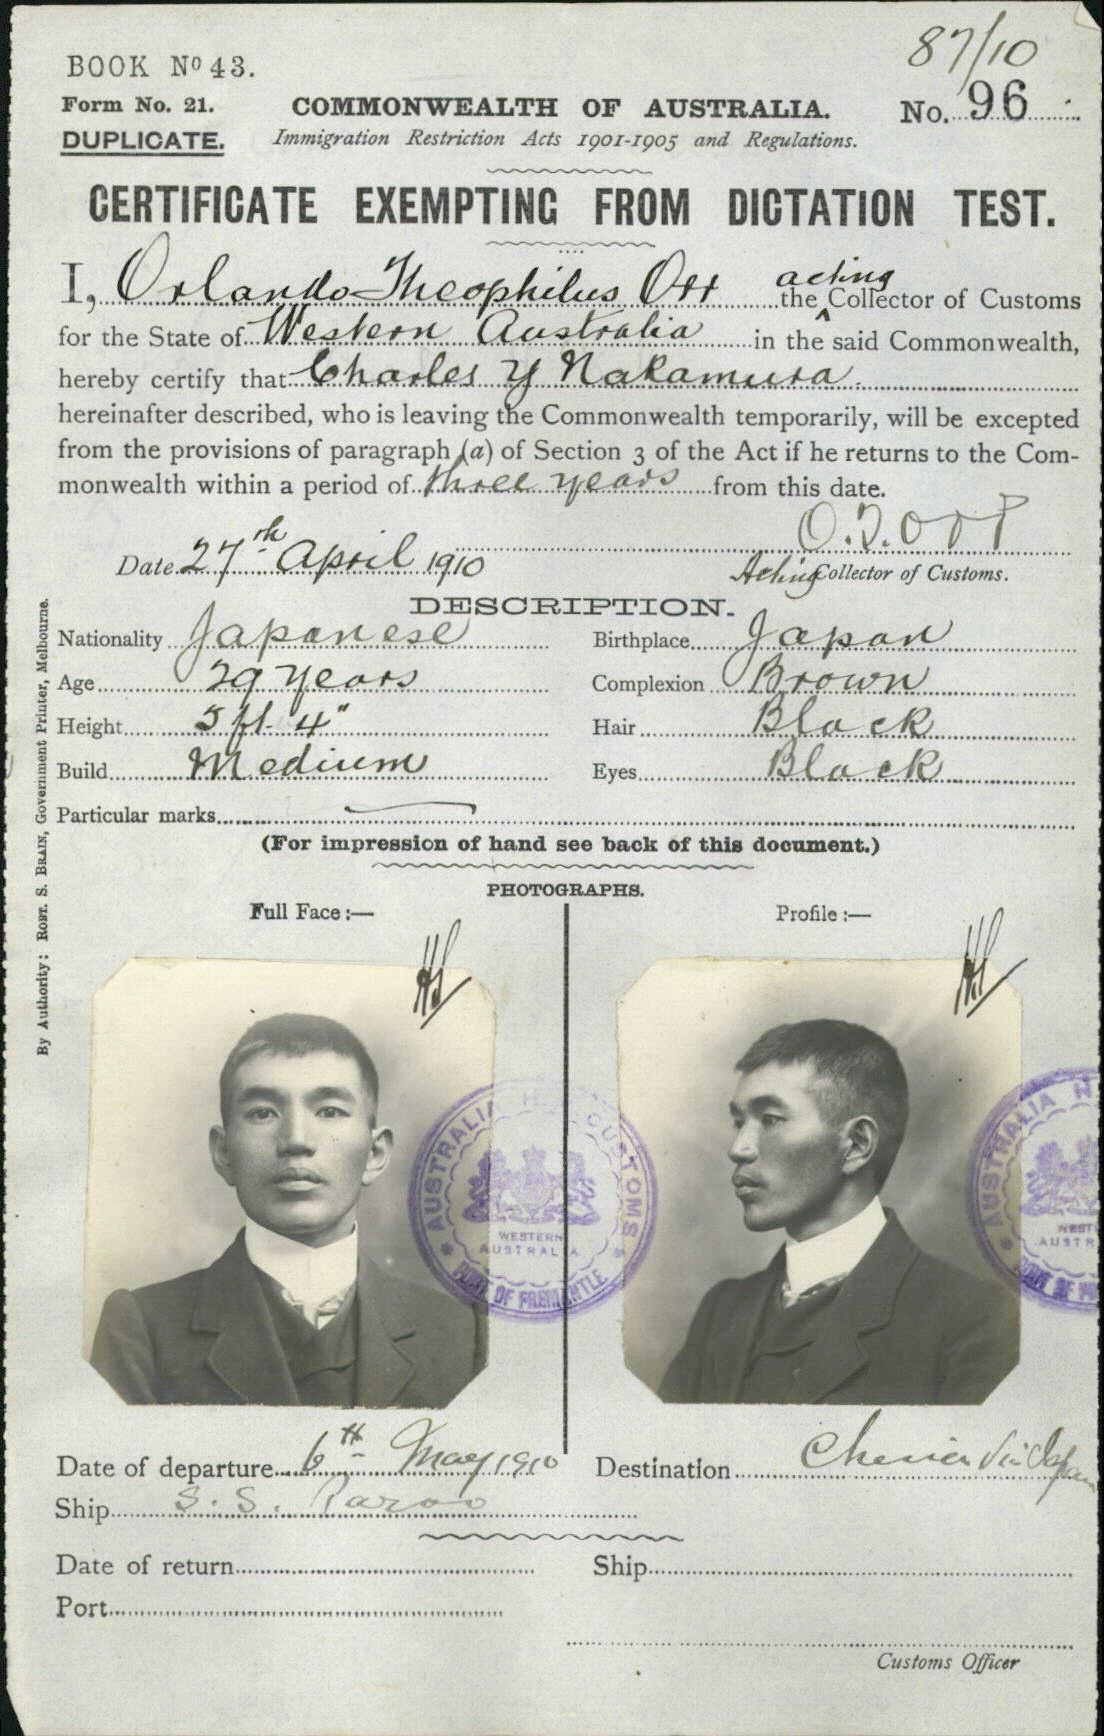 87/10
BOOK Nº 43.
Form No. 21. COMMONWEALTH OF AUSTRALIA. No. 96
DUPLICATE. Immigration Restriction Acts 1901-1905 and Regulations.
CERTIFICATE EXEMPTING FROM DICTATION TEST.
I, Orlando Theophilus Orr the acting Collector of Customs
for the State of Western Australia in the said Commonwealth,
hereby certify that Charles Y Nakamura.
hereinafter described, who is leaving the Commonwealth temporarily, will be excepted
from the provisions of paragraph (a) of Section 3 of the Act if he returns to the Com-
monwealth within a period of three years from this date.
O.T. Orr
Date 27th April 1910 Acting Collector of Customs.
DESCRIPTION.
Nationality Japanese Birthplace Japan
Age 29 years Complexion Brown
Height 5 ft. 4" Hair Black
Build Medium Eyes Black
Particular marks
(For impression of hand see back of this document.)
PHOTOGRAPHS.
Full Face :— Profile :—
AUSTRALIA H. CUSTOMS
WESTERN
AUSTRALIA
PORT OF FREMANTLE
AUSTRALIA H
WEST
AUSTR
PORT OF FR
Date of departure 6th May 1910 Destination via Japan
Ship S.S. Paroo
Date of return Ship
Port
Customs Officer
By Authority: ROBT. S. BRAIN, Government Printer, Melbourne.